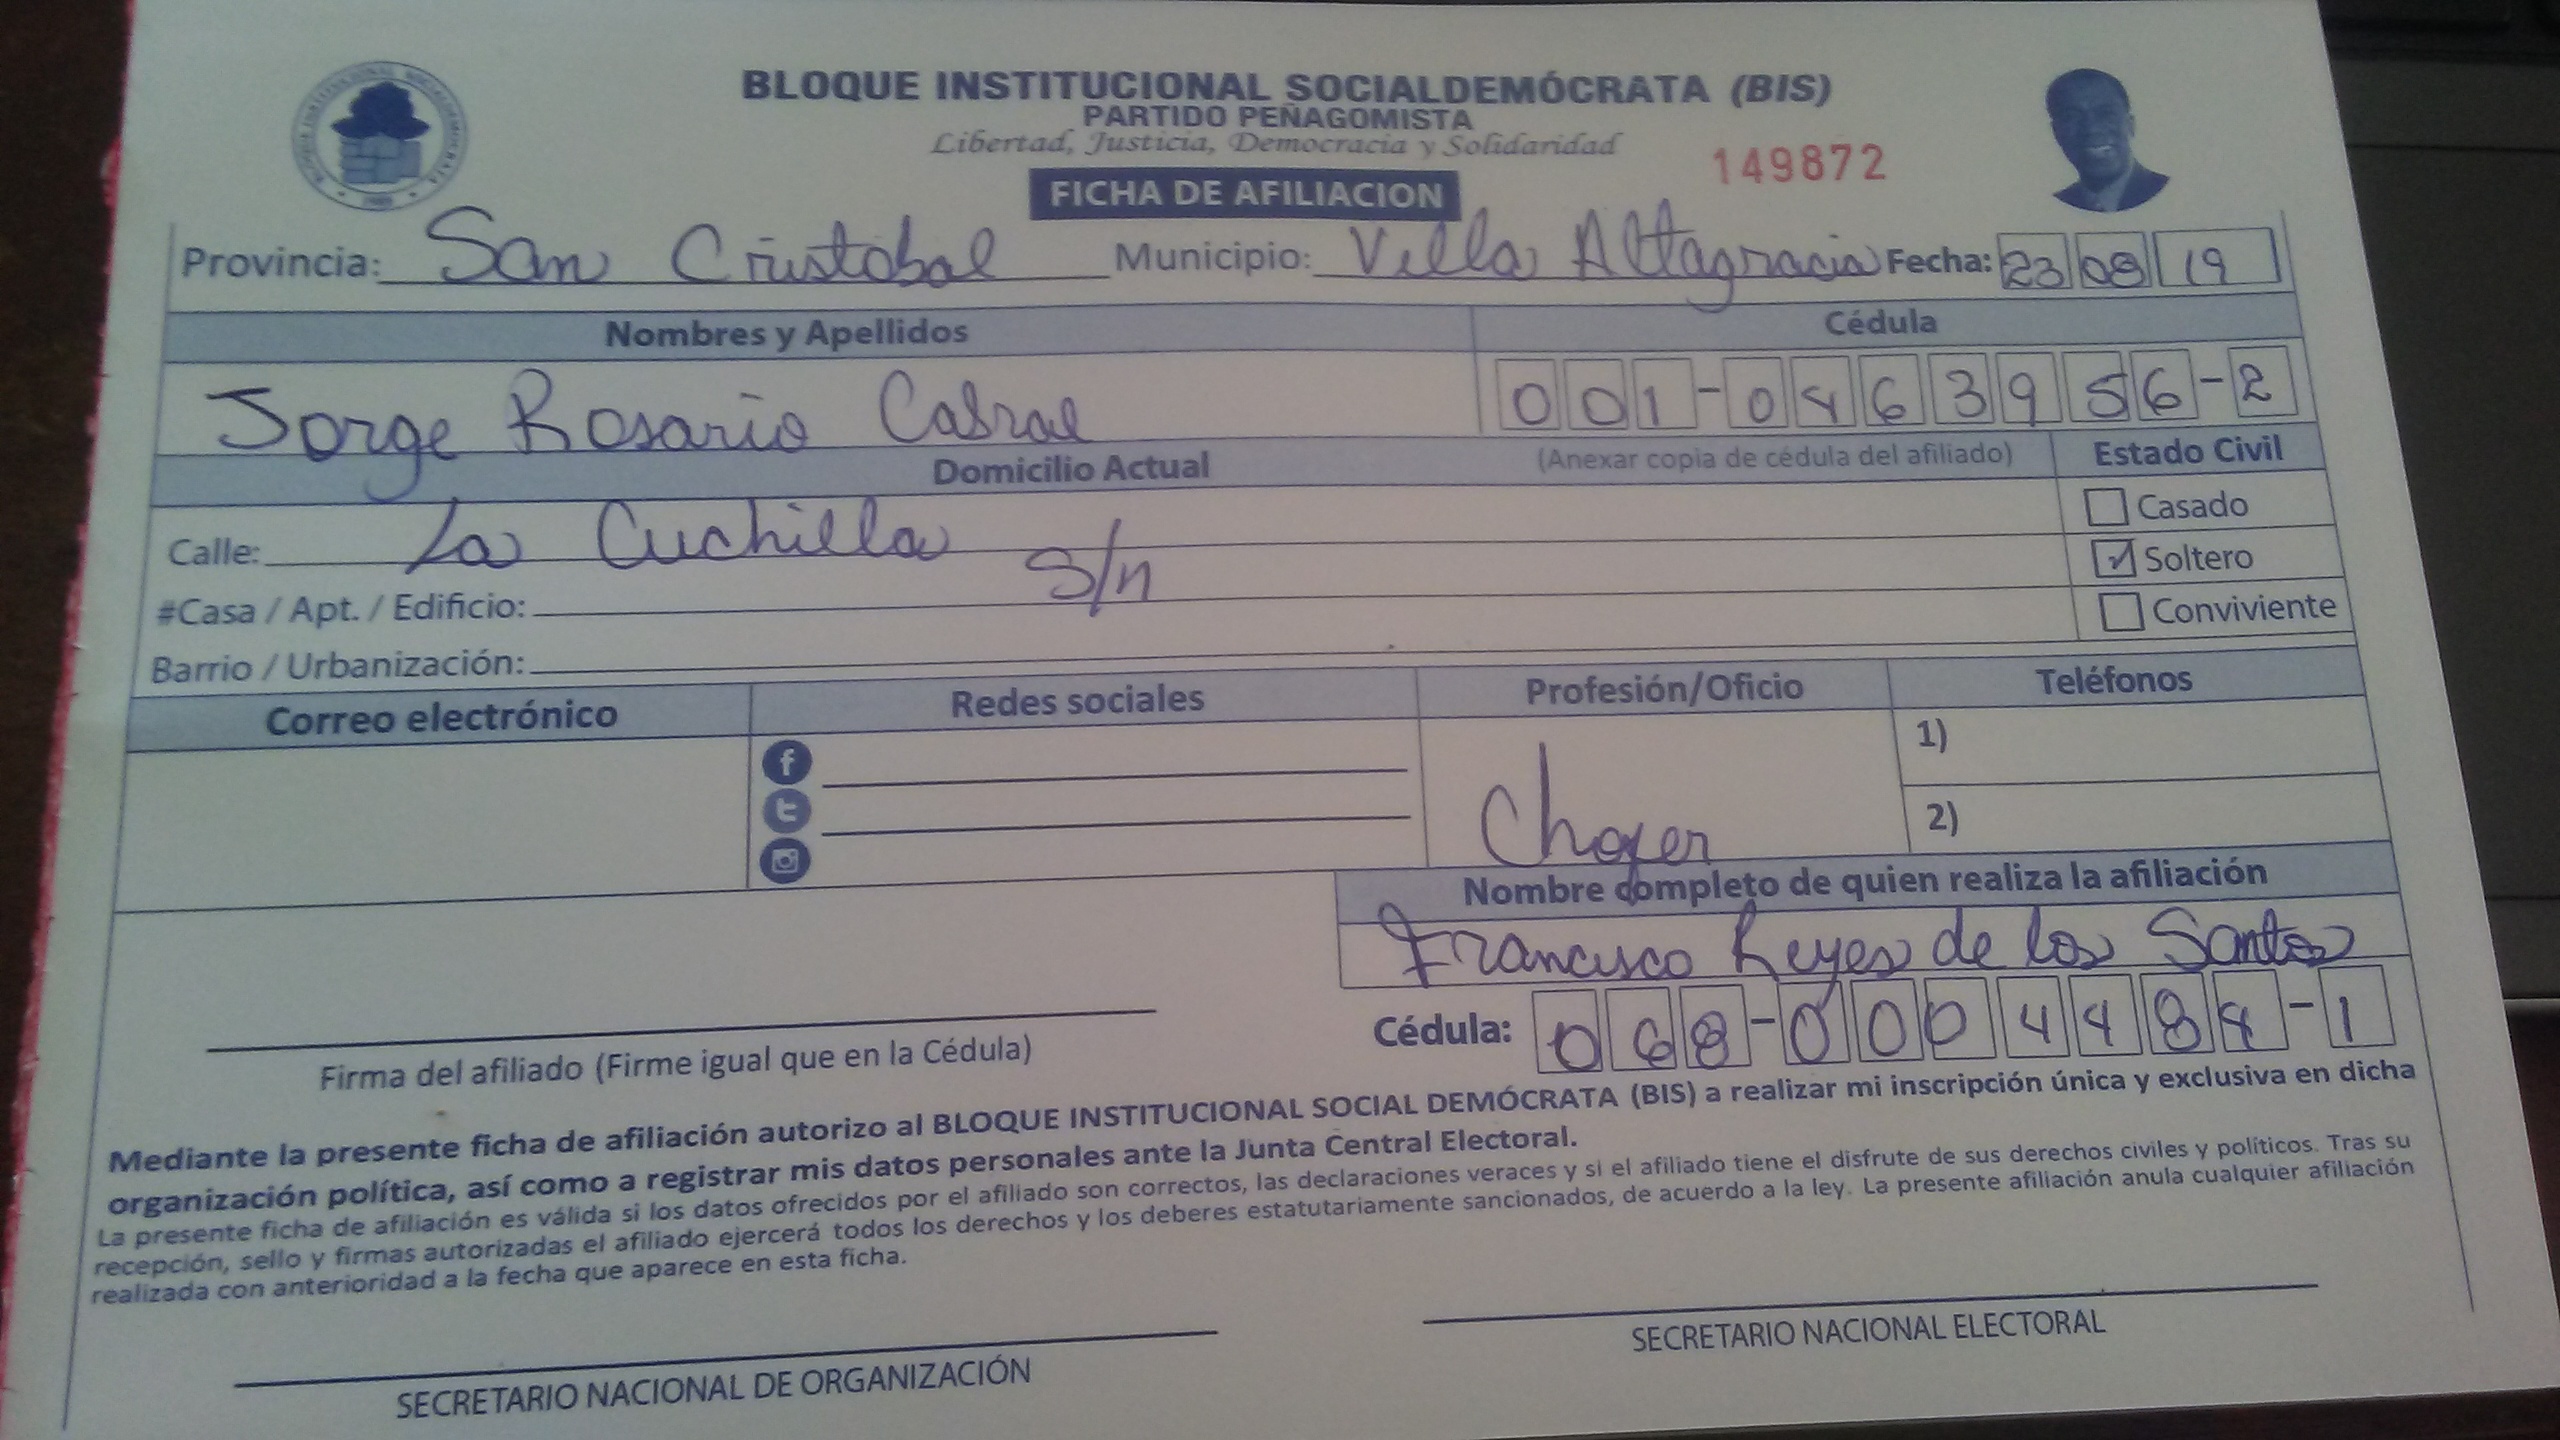 BLOQUE INSTITUCIONAL SOCIALDEMÓCRATA (BIS)
PARTIDO PEÑAGOMISTA
Libertad, Justicia, Democracia y Solidaridad
149872
FICHA DE AFILIACION
Provincia: San Cristobal Municipio: Villa Altagracia Fecha: 23 08 19
Nombres y Apellidos Cédula
Jorge Rosario Cabral 001-0463956-2
Domicilio Actual (Anexar copia de cédula del afiliado) Estado Civil
Calle: La Cuchilla Casado
#Casa / Apt. / Edificio: S/n Soltero
Barrio / Urbanización: Conviviente
Correo electrónico Redes sociales Profesión/Oficio Teléfonos
1)
Chofer 2)
Nombre completo de quien realiza la afiliación
Francisco Reyes de los Santos
Cédula: 068-0004484-1
Firma del afiliado (Firme igual que en la Cédula)
Mediante la presente ficha de afiliación autorizo al BLOQUE INSTITUCIONAL SOCIAL DEMÓCRATA (BIS) a realizar mi inscripción única y exclusiva en dicha
organización política, así como a registrar mis datos personales ante la Junta Central Electoral.
La presente ficha de afiliación es válida si los datos ofrecidos por el afiliado son correctos, las declaraciones veraces y si el afiliado tiene el disfrute de sus derechos civiles y políticos. Tras su
recepción, sello y firmas autorizadas el afiliado ejercerá todos los derechos y los deberes estatutariamente sancionados, de acuerdo a la ley. La presente afiliación anula cualquier afiliación
realizada con anterioridad a la fecha que aparece en esta ficha.
SECRETARIO NACIONAL DE ORGANIZACIÓN SECRETARIO NACIONAL ELECTORAL